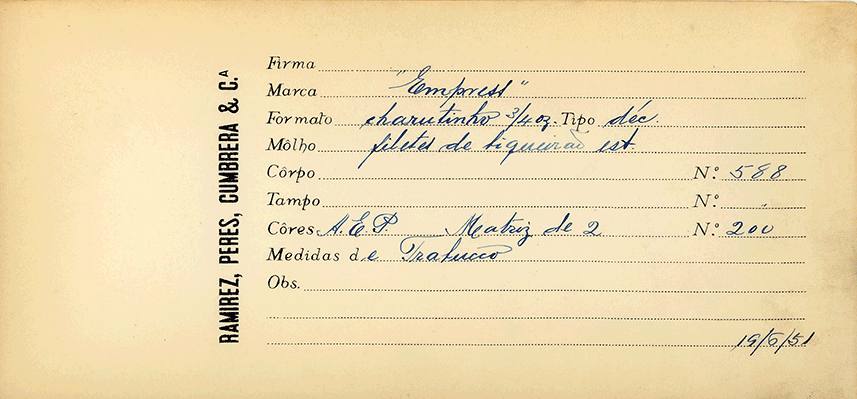 RAMIREZ, PERES, CUMBRERA & C.ᴬ
Firma
Marca "Empress"
Formato charutinho 3/4 oz. Tipo déc.
Môlho filetes de biqueirão est.
Côrpo N.º 588
Tampo N.º
Côres A.E.P. — Matriz de 2 N.º 200
Medidas de
Obs.
19/6/51